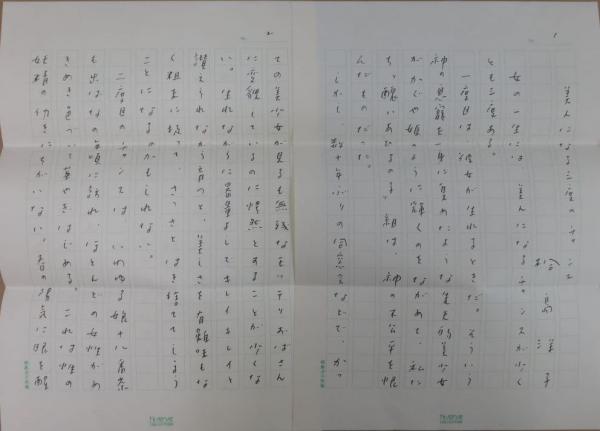 1
美人になる三度のチャンス
松島洋子
女の一生には、美人になるチャンスが少く
とも三度ある。
一度目は彼女が生れるときだ。そういう
神の恩寵を一身に集めたような生まれつき美少女
がかぐや姫のように輝くのをながめて、私た
ち醜いあひるの子組は、神の不公平を恨
んだものだった。
しかし、数十年ぶりの同窓会などで、かつ
2
ての美少女が見るも無残なモッテリおばさん
に変貌しているのに愕然とすることが少くな
い。生れながらに器量よしでキレイキレイと
讃えられながら育つと、美しさを有難味もな
く粗末に扱って、さっさとはき捨ててしまう
ことになるのかもしれない。
二度目のチャンスは、いわゆる娘十八番茶
も出ばなの頃に訪れ、ほとんどの女性がめ
きめき色づいて華やぎはじめる。これは性の
妖精の仕業にちがいない。春の陽気に眼を醒